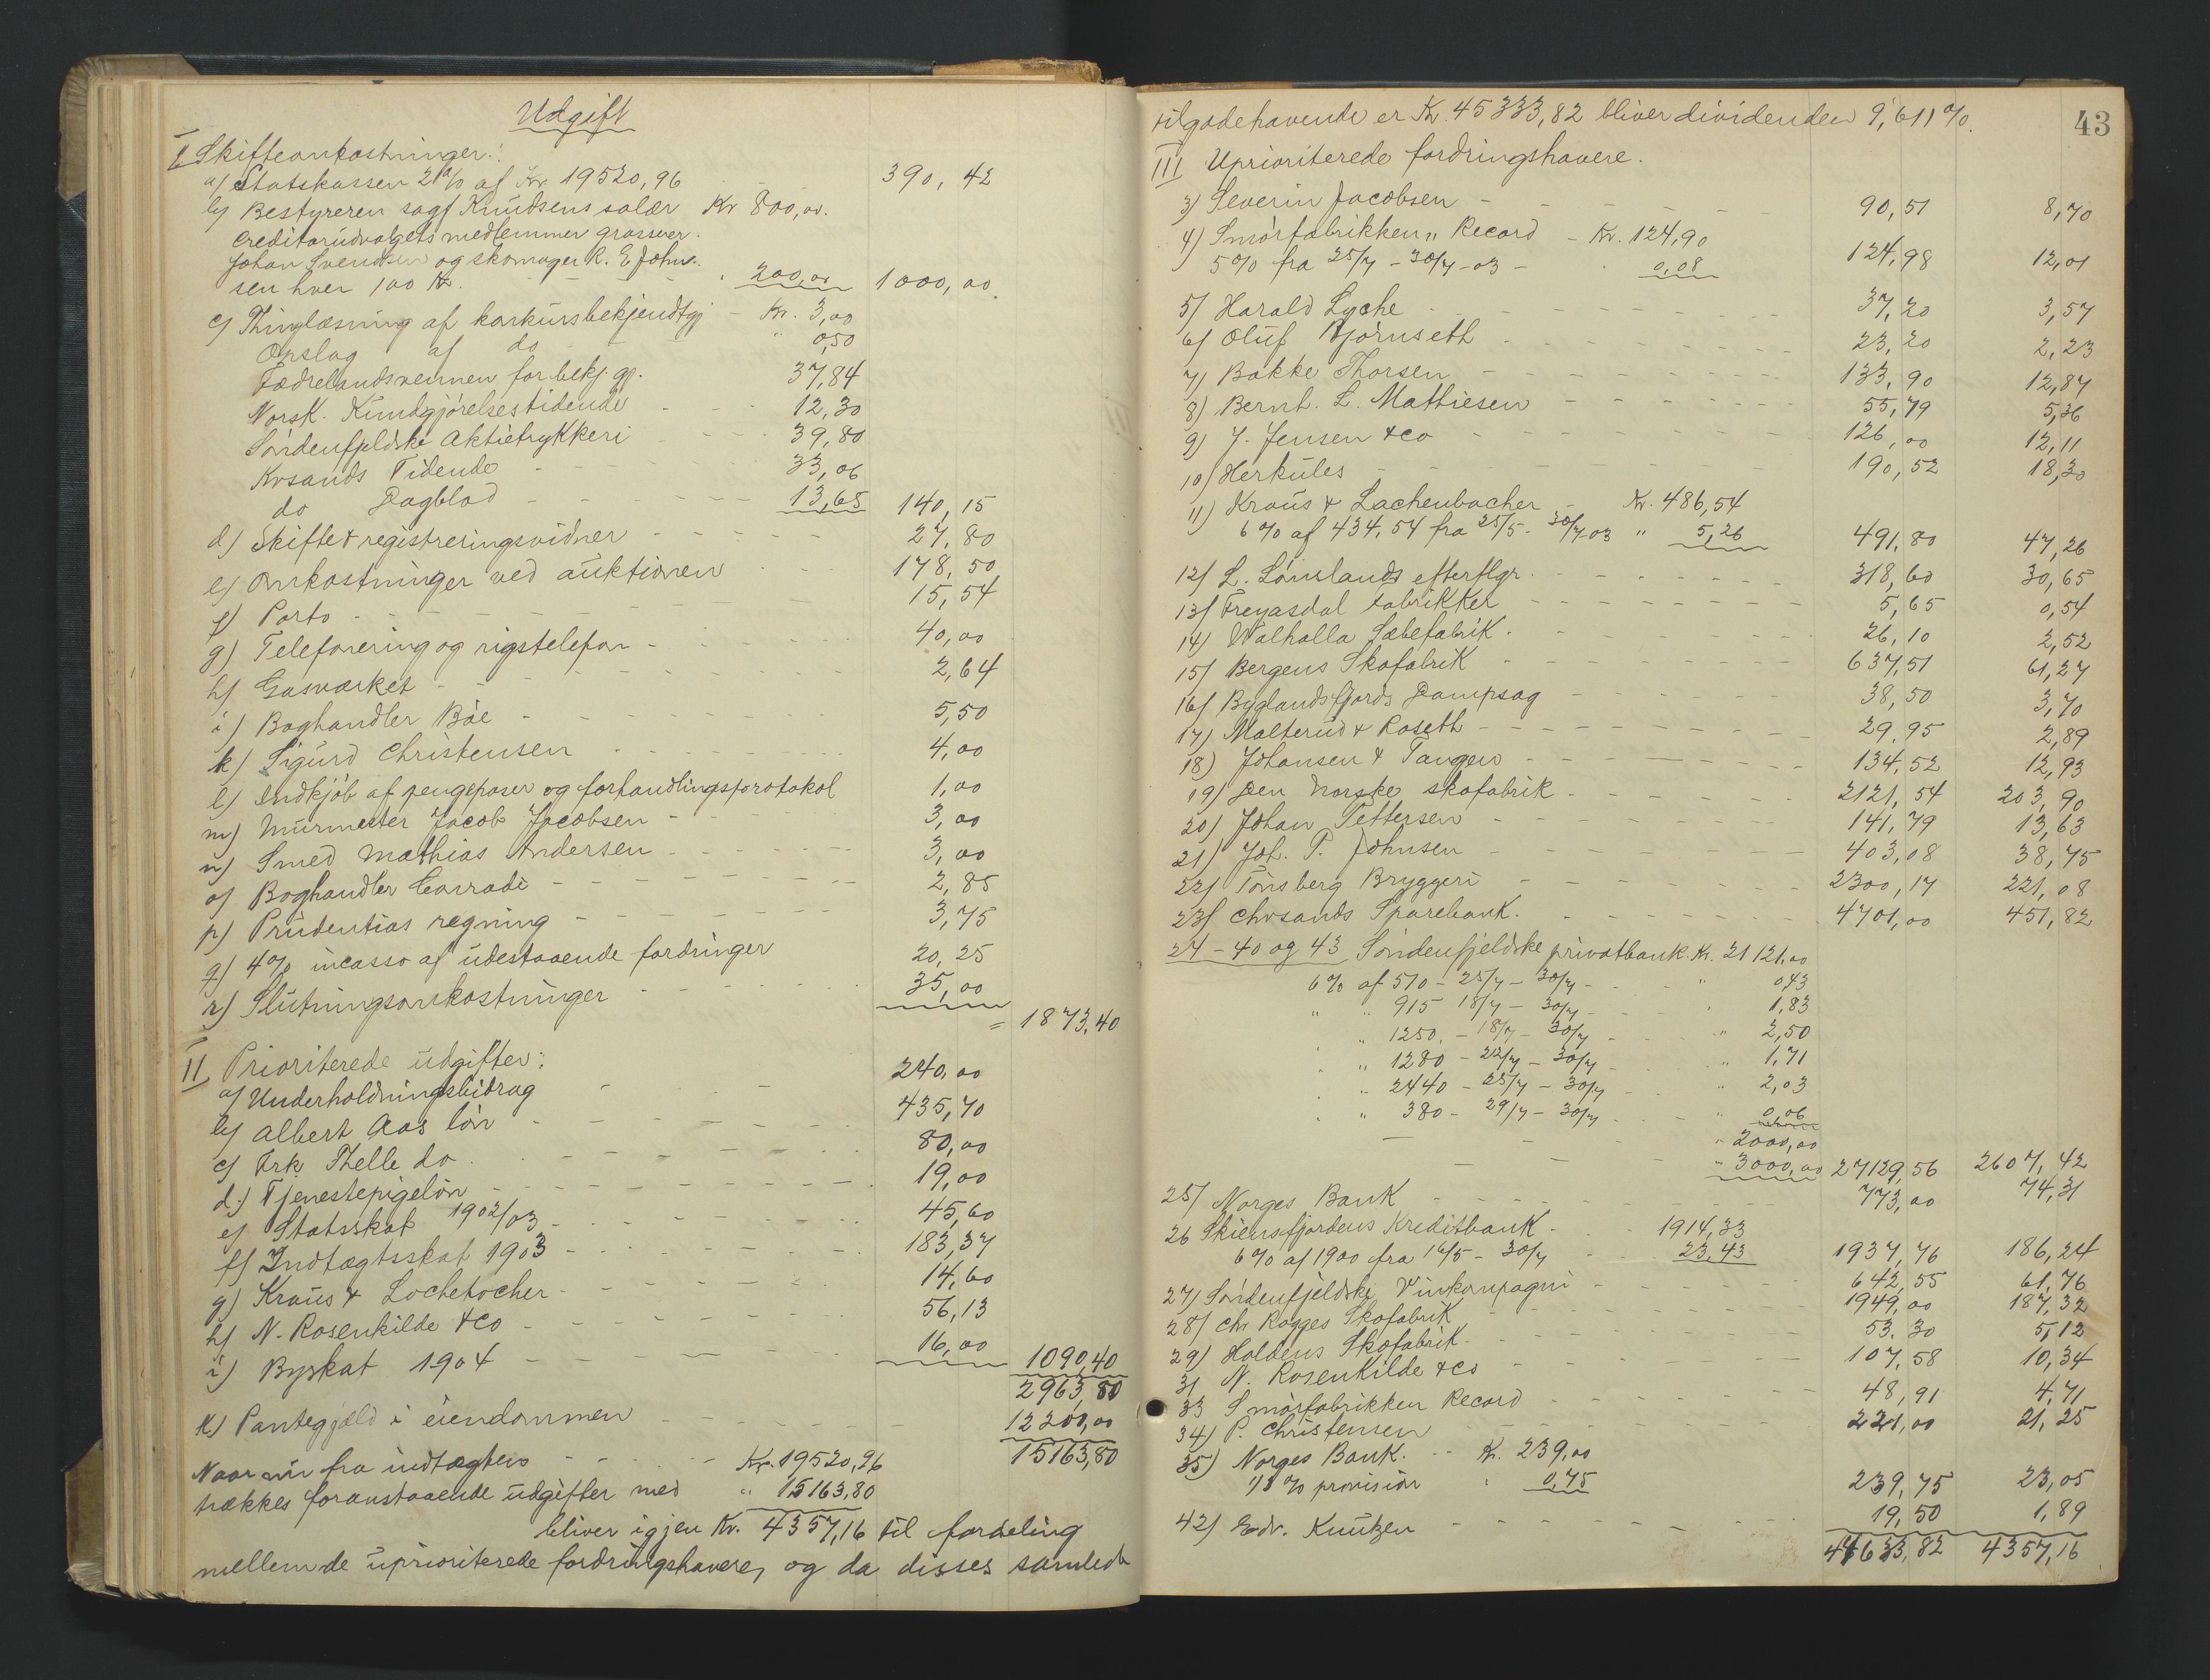 Udgift
I Skifteomkostninger:
a) Statskassen 2% af Kr 19520,96 390,42
b) Bestyreren sagf. Knudsens salær Kr 800,00.
Creditorudvalgets medlemmer grosserer
Johan Svendsen og skomager R. E. John-
sen hver 100 Kr. " 200,00 1000,00
c) Thinglæsning af konkursbekjendtgj – Kr. 3,00
Opslag af do " 0,50
Fædrelandsvennen for bekj. gj. 37,84
Norsk. Kundgjørelsestidende 12,30
Søndenfjeldske Aktietrykkeri 39,80
Krsands Tidende 33,06
do Dagblad 13,65 140,15
d) Skifte & registreringsvidner 27,80
e) Omkostninger ved auktionen 178,50
f) Porto 15,54
g) Telefonering og rigstelefon 40,00
h) Gasværket 2,64
i) Boghandler Bøe 5,50
k) Sigurd Christensen 4,00
l) Indkjøb af pengeposer og forhandlingsprotokol 1,00
m) Murmester Jacob Jacobsen 3,00
n) Smed Mathias Andersen 3,00
o) Boghandler Conradi 2,85
p) Prudentias regning 3,75
q) 4% incasso af udestaaende fordringer 20,25
r) Slutningsomkostninger 35,00
= 1873,40
II Prioriterede udgifter:
a) Underholdningsbidrag 240,00
b) Albert Aas løn 435,70
c) Frk. Thelle do 80,00
d) Tjenestepigeløn 19,00
e) Statsskat 1902/03 45,60
f) Indtægtsskat 1903 183,37
g) Kraus & Lochetocher 14,60
h) N. Rosenkilde & Co 56,13
i) Byskat 1904 16,00 1090,40
2963,80
k) Pantegjæld i eiendommen 12200,00
15163,80
Naar nu fra indtægten Kr. 19520,96
trækkes foranstaaende udgifter med " 15163,80
bliver igjen Kr. 4357,16 til fordeling
mellem de uprioriterede fordringshavere, og da disses samlede
43
tilgodehavende er Kr. 45333,82 bliver dividenden 9,611%.
III Uprioriterede fordringshavere.
3) Severin Jacobsen 90,51 8,70
4) Smørfabrikken „ Record – Kr. 124,90
5% fra 25/7 – 30/7 – 03 – 0,08 124,98 12,01
5) Harald Lyche 37,20 3,57
6) Oluf Bjørnseth 23,20 2,23
7) Bakke Thorsen 133,90 12,87
8) Bernh. L. Mathiesen 55,79 5,36
9) J. Jensen & Co 126,00 12,11
10) Herkules 190,52 18,30
11) Kraus & Lachenbacher Kr. 486,54
6% af 434,54 fra 25/5 – 30/7-03 " 5,26 491,80 47,26
12) L. Lønslands efterflgr. 318,60 30,65
13) Freyasdal fabrikker 5,65 0,54
14) Walhalla Sæbefabrik 26,10 2,52
15) Bergens Skofabrik 637,51 61,27
16) Byglandsfjords Dampsag 38,50 3,70
17) Malterud & Roseth 29,95 2,89
18) Johansen & Tangen 134,52 12,93
19) Den Norske skofabrik 2121,54 203,90
20) Johan Pettersen 141,79 13,63
21) Joh. P. Johnsen 403,08 38,75
22) Tønsberg Bryggeri 2300,17 221,08
23) Chrsands Sparebank. 4701,00 451,82
24 – 40 og 43 Søndenfjeldske privatbank. Kr. 21121,00
6% af 510 – 25/7 – 30/7 – " 0,43
" " 915 18/7 – 30/7 – 1,83
" " 1250 – 18/7 – 30/7 " 2,50
" " 1280 – 22/7 – 30/7 " 1,71
" " 2440 – 25/7 – 30/7 " 2,03
" " 380 – 29/7 – 30/7 " 0,06
" 2000,00
" 3000,00 27129,56 2607,42
25) Norges Bank 773,00 74,31
26 Skiensfjordens Kreditbank 1914,33
6% af 1900 fra 16/5 – 30/7 23,43 1937,76 186,24
27) Søndenfjeldske Vinkompagni 642,55 61,76
28) Chr Rogges Skofabrik 1949,00 187,32
29) Holdens Skofabrik 53,30 5,12
31 N. Rosenkilde & Co 107,58 10,34
33 Smørfabrikken Record 48,91 4,71
34) P. Christensen 221,00 21,25
35) Norges Bank. Kr. 239,00
1/3% provision " 0,75 239,75 23,05
42) Edv. Knutzen 19,50 1,89
44633,82 4357,16